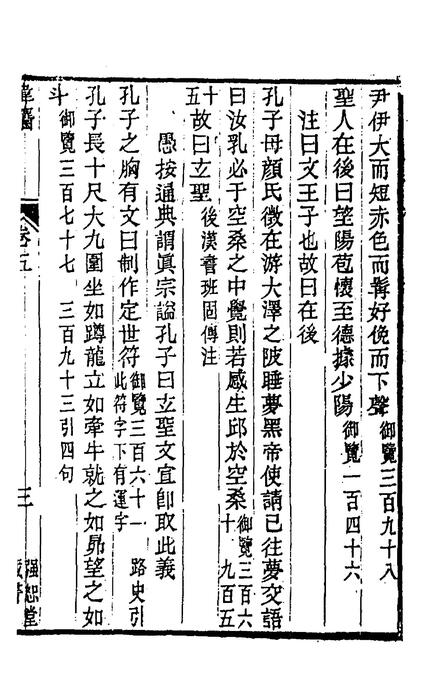 尹伊大而短赤色而髯好俛而下聲御覽三百九十八
聖人在後曰望陽苞懷至德據少陽御覽一百四十六
注曰文王子也故曰在後
孔子母顏氏徵在游大澤之陂睡夢黑帝使請已往夢交語
曰汝乳必于空桑之中覺則若感生邱於空桑御覽三百六十 九百五
十五故曰玄聖後漢書班固傳注
愚按通典謂眞宗謚孔子曰玄聖文宣卽取此義
孔子之胸有文曰制作定世符御覽三百六十一 路史引此符字下有運字
孔子長十尺大九圍坐如蹲龍立如牽牛就之如昴望之如
斗御覽三百七十七 三百九十三引四句
緯
卷五
三
强恕堂